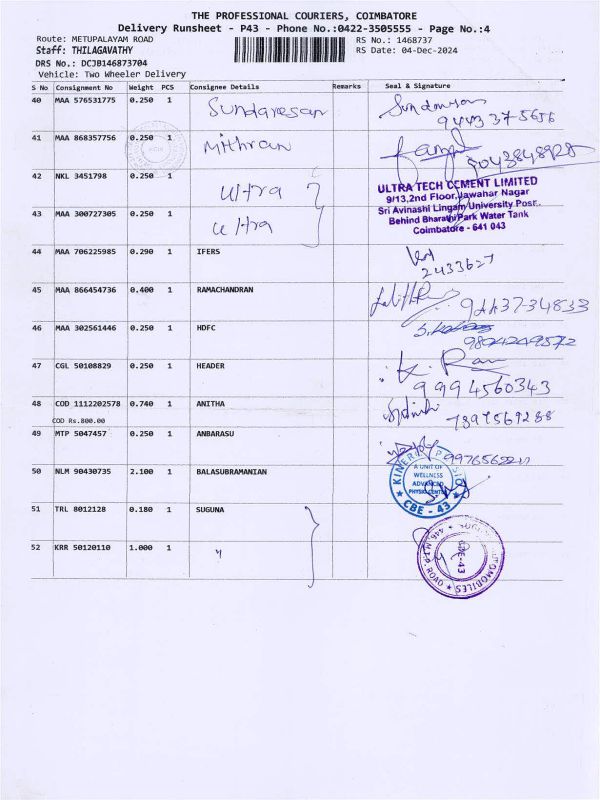 THE PROFESSIONAL COURIERS, COIMBATORE
Delivery Runsheet - P43 - Phone No.:0422-3505555 - Page No.:4
Route: METUPALAYAM ROAD RS No.: 1468737
Staff: THILAGAVATHY RS Date: 04-Dec-2024
DRS No.: DCJ0146873704
Vehicle: Two Wheeler Delivery
S No Consignment No Weight PCS Consignee Details Remarks Seal & Signature
40 MAA 576531775 0.250 1 Sundaresan
94433 75656
41 MAA 868357756 0.250 1 Mithran
8043848928
42 NKL 3451798 0.250 1 Ultra
ULTRA TECH CEMENT LIMITED
9/13,2nd Floor,Jawahar Nagar
Sri Avinashi Lingam University Post..
Behind Bharathi Park Water Tank
Coimbatore - 641 043
43 MAA 300727305 0.250 1 Ultra
44 MAA 706225985 0.290 1 IFERS
2433627
45 MAA 866454736 0.400 1 RAMACHANDRAN
46 MAA 302561446 0.250 1 HDFC
47 CGL 50108829 0.250 1 HEADER
K. Ram
9994560343
48 COD 1112202578 0.740 1 ANITHA
COD Rs.800.00
7397569288
49 MTP 5047457 0.250 1 ANBARASU
50 NLM 90430735 2.100 1 BALASUBRAMANIAN
A UNIT OF
WELLNESS
ADVANCED
PHYSIO CENTRE
CBE - 43
51 TRL 8012128 0.180 1 SUGUNA
52 KRR 50120110 1.000 1 "
CBE-43
AUTOMOBILES